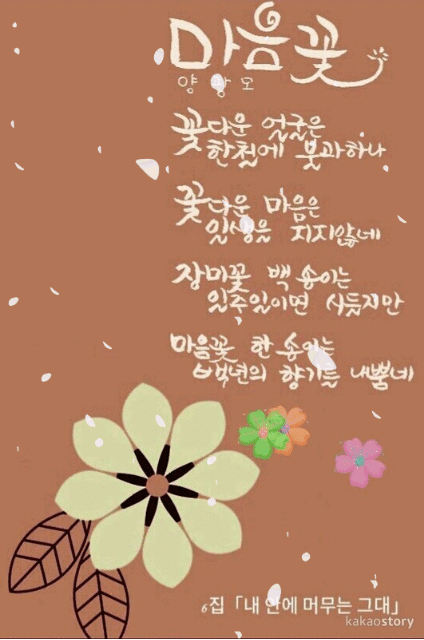 마음꽃
양광모
꽃다운 얼굴은
한철에 불과하나
꽃다운 마음은
일생을 지지않네
장미꽃 백 송이는
일주일이면 시들지만
마음꽃 한 송이는
백년의 향기를 내뿜네
6집「내 안에 머무는 그대」
kakaostory